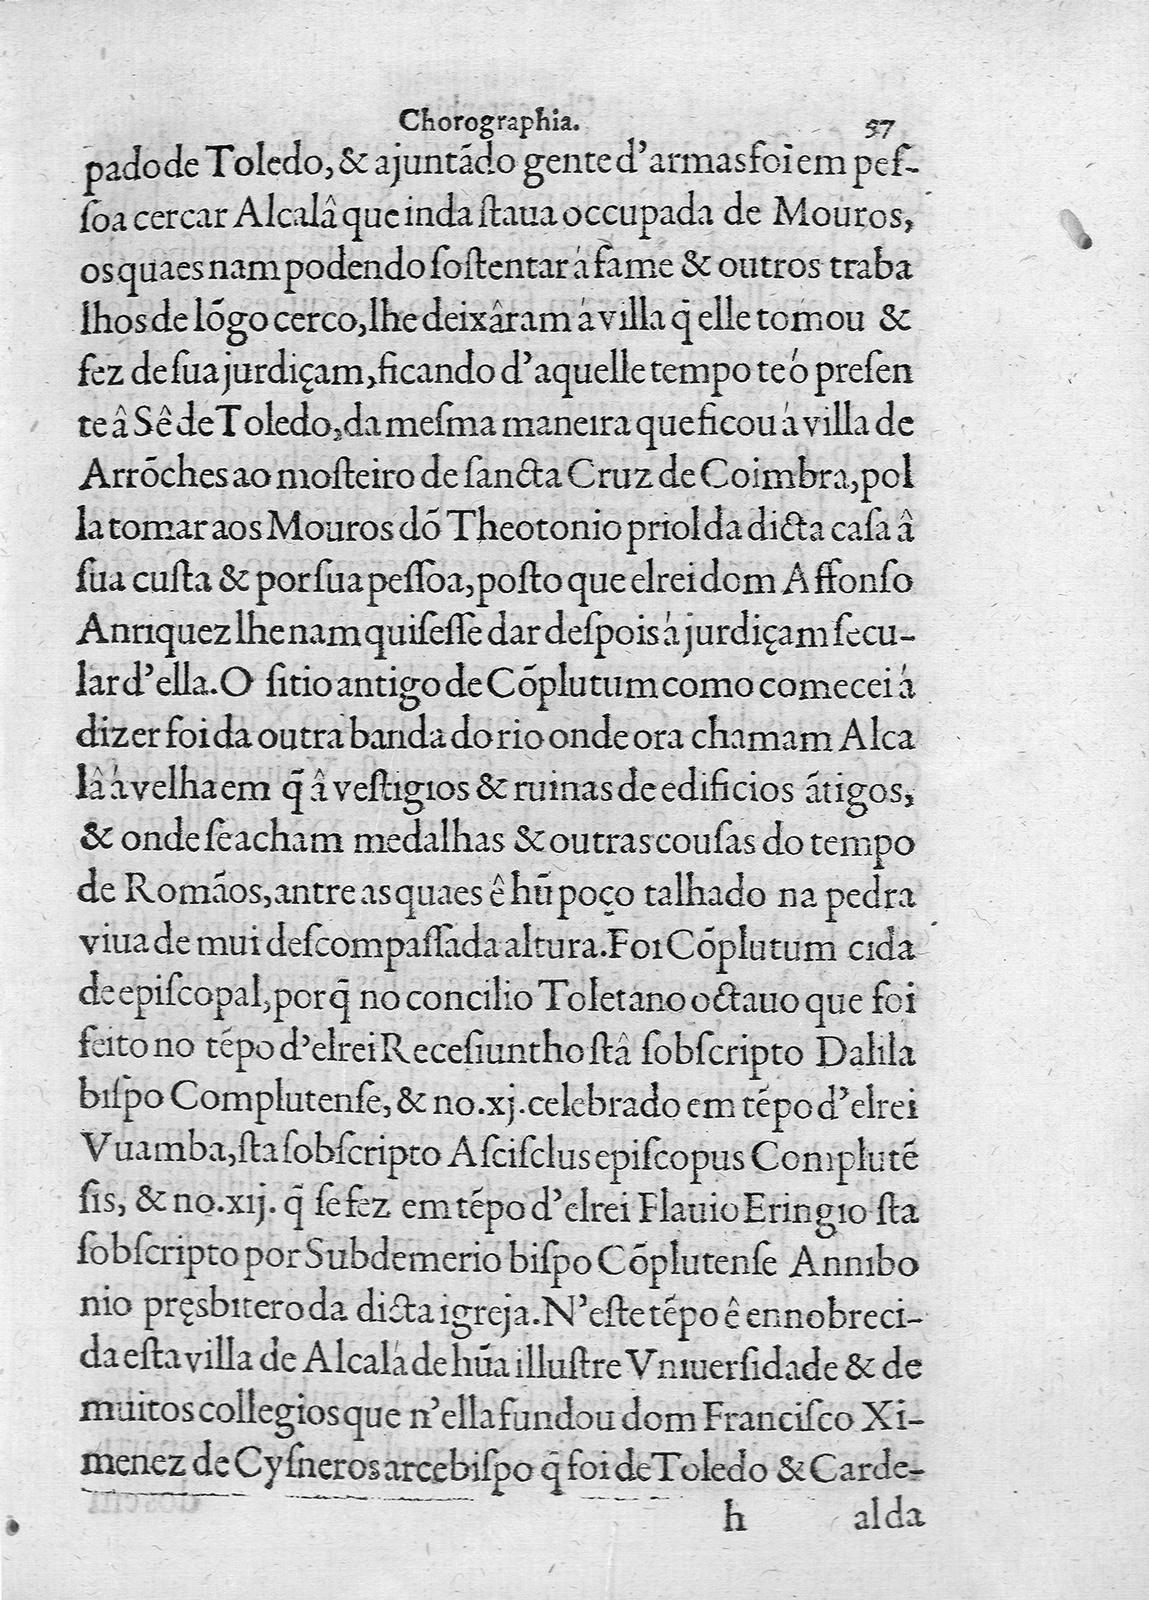 Chorographia. 57
pado de Toledo, & ajuntãdo gente d'armas foi em peſ-
ſoa cercar Alcalâ que inda ſtaua occupada de Mouros,
os quaes nam podendo ſoſtentar á fame & outros traba
lhos de lõgo cerco, lhe deixâram á villa q̃ elle tomou &
fez de ſua jurdiçam, ficando d'aquelle tempo te ó preſen
te â Sê de Toledo, da meſma maneira que ficou á villa de
Arrõches ao moſteiro de ſancta Cruz de Coimbra, pol
la tomar aos Mouros dõ Theotonio priol da dicta caſa â
ſua cuſta & por ſua peſſoa, poſto que elrei dom Affonſo
Anriquez lhe nam quiſeſſe dar deſpois á jurdiçam ſecu-
lar d'ella. O ſitio antigo de Cõplutum como comecei á
dizer foi da outra banda do rio onde ora chamam Alca
lâ á velha em q̃ â veſtigios & ruinas de edificios ãtigos,
& onde ſe acham medalhas & outras couſas do tempo
de Romãos, antre as quaes ê hũ poço talhado na pedra
viua de mui deſcompaſſada altura. Foi Cõplutum cida
de epiſcopal, porq̃ no concilio Toletano octauo que foi
feito no tẽpo d'elrei Receſiuntho ſtâ ſobſcripto Dalila
biſpo Complutenſe, & no .xj. celebrado em tẽpo d'elrei
Vuamba, ſta ſobſcripto Aſciſclus epiſcopus Complutẽ
ſis, & no .xij. q̃ ſe fez em tẽpo d'elrei Flauio Eringio ſta
ſobſcripto por Subdemerio biſpo Cõplutenſe Annibo
nio pręsbitero da dicta igreja. N'eſte tẽpo ê ennobreci-
da eſta villa de Alcalá de hũa illuſtre Vniuerſidade & de
muitos collegios que n'ella fundou dom Franciſco Xi-
menez de Cyſneros arcebiſpo q̃ foi de Toledo & Carde-
h alda